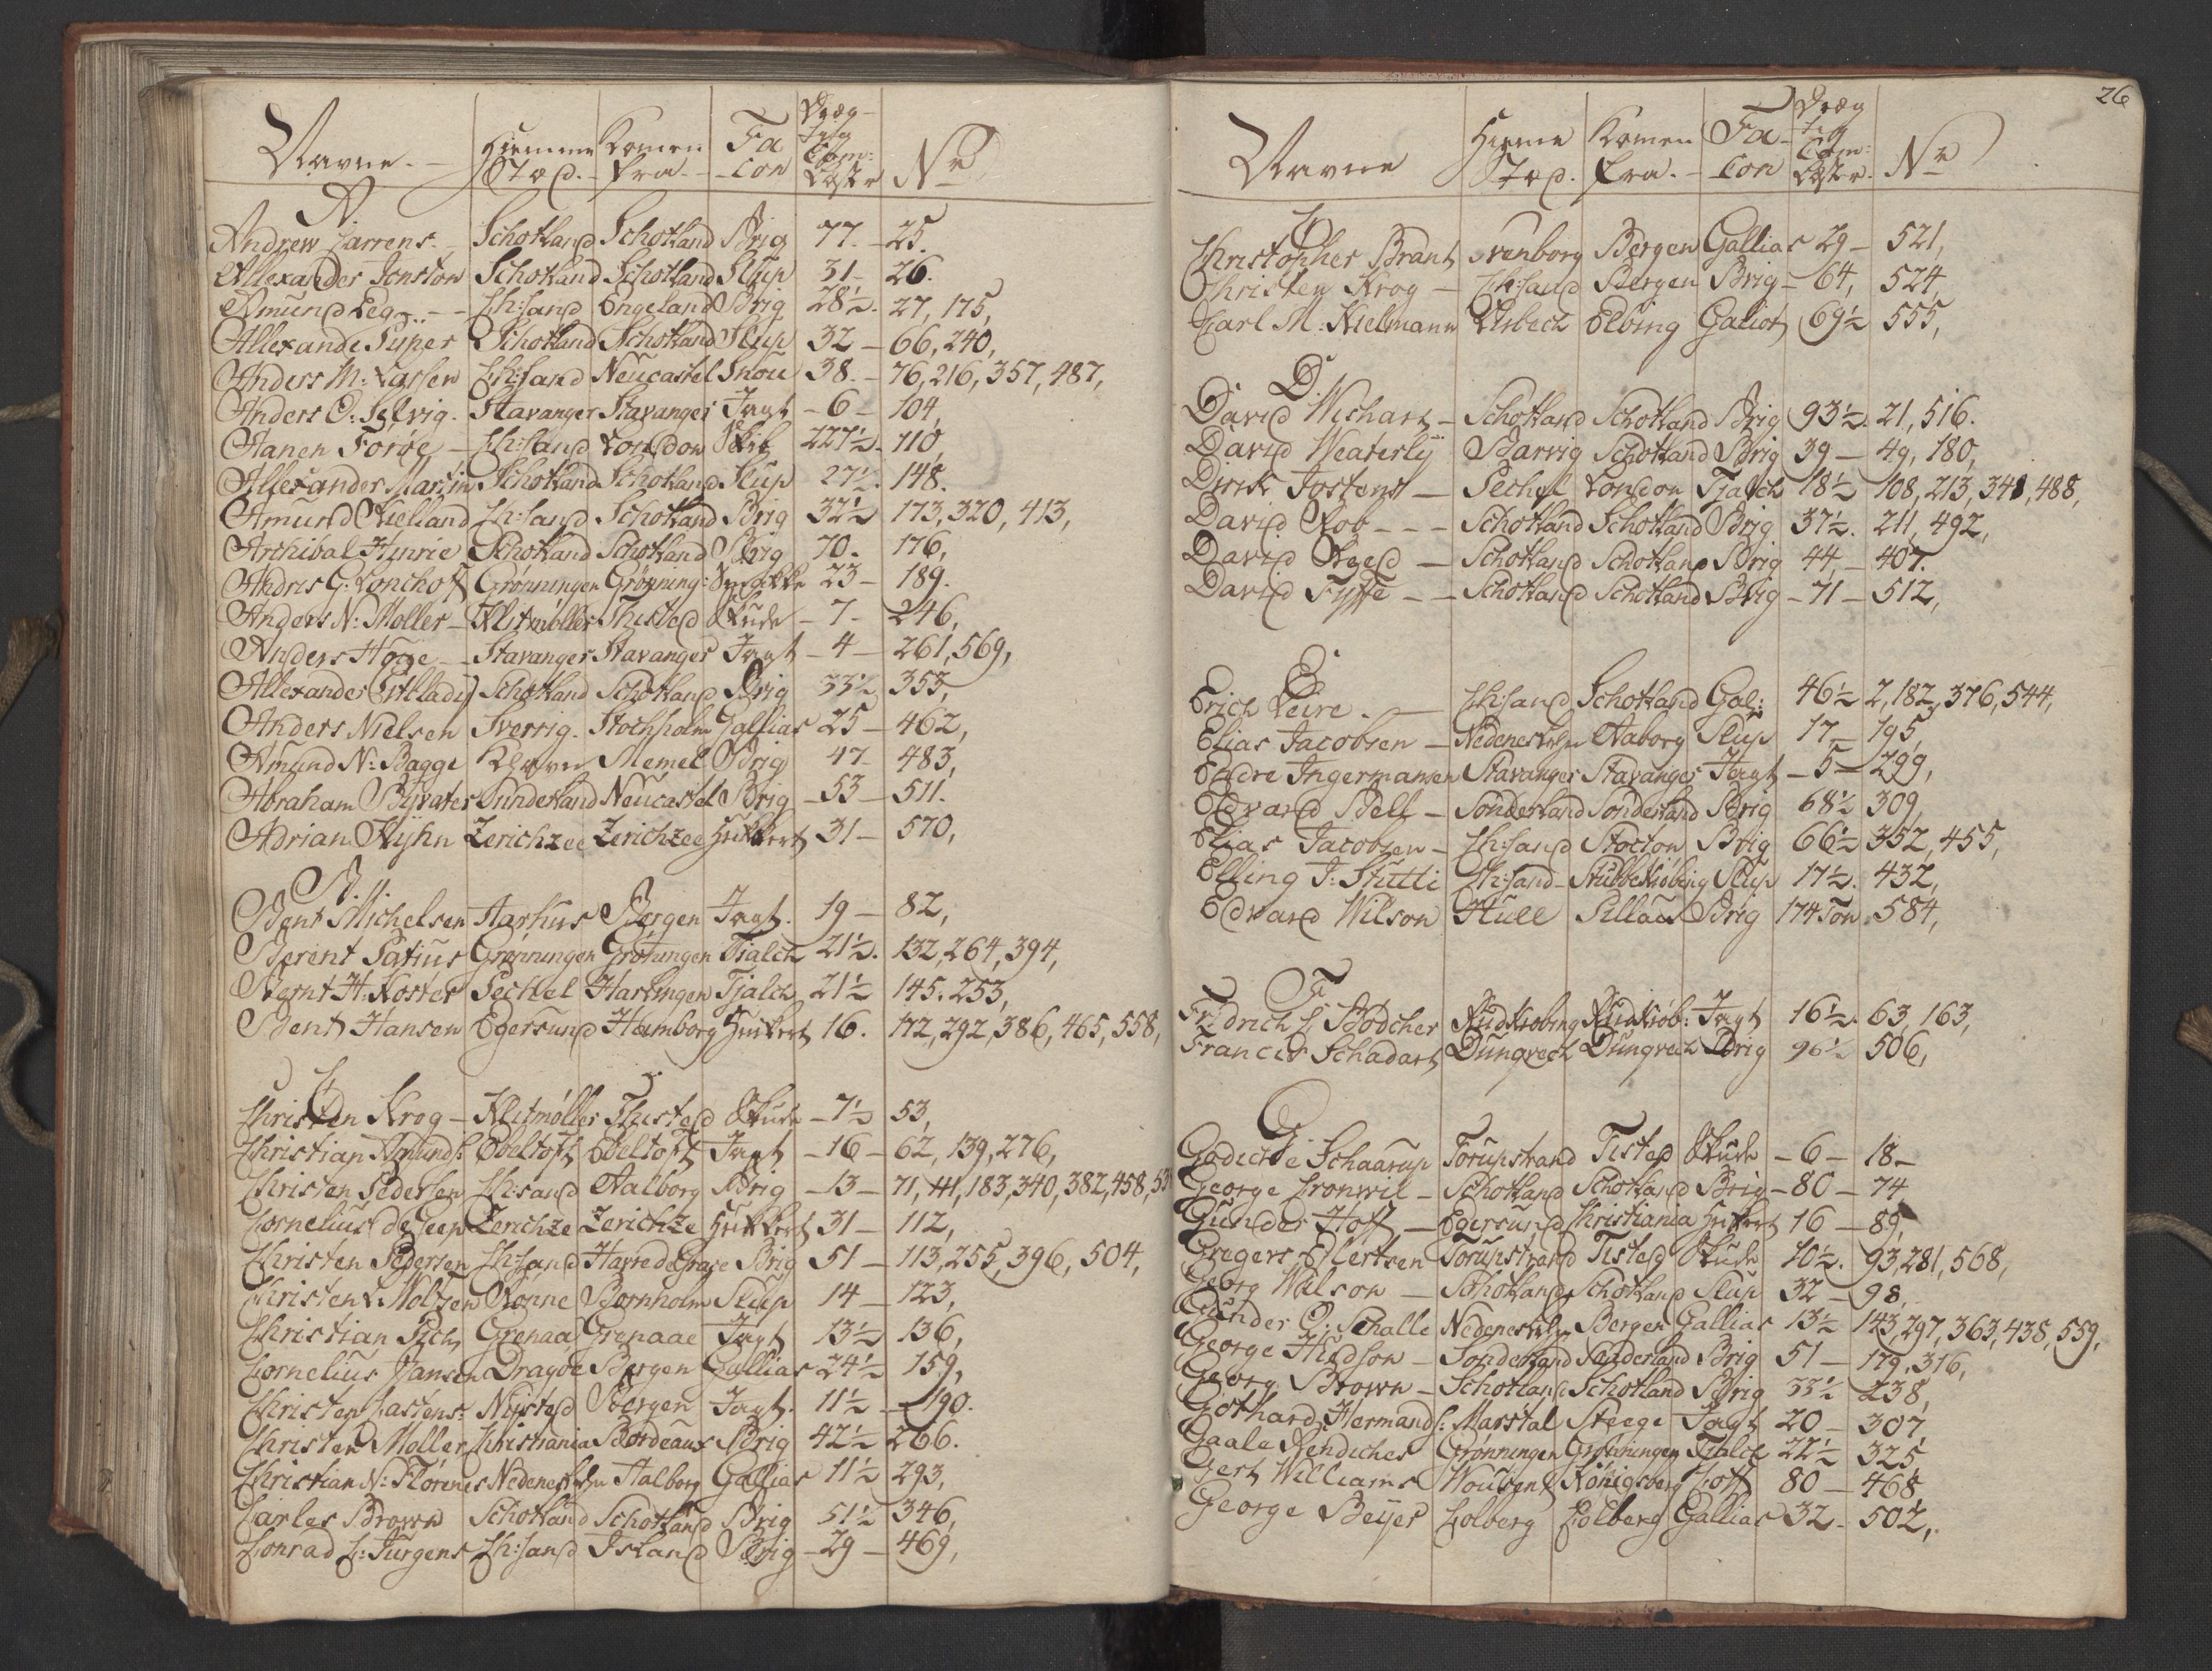 Navne. Hiemme Stæd. Komen fra. Facon Dræg-tig Com: Læster No
A
Andrew Carrens. Schotland Schotland Brig 77. 25.
Allexander Jonston Schotland Schotland Slup 31 26.
Amund Eeg Ch:sand Engeland Brig 28½. 27, 175,
Allexande Piper Schotland Schotland Slup 32 66, 240,
Anders M: Lassen Ch:sand Neucastel Snou 38. 76, 216, 357, 487,
Anders O: Selvig. Stavanger Stavanger Jagt 6 104,
Aanen Forøe Ch:sand London Skib 227½. 110,
Allexander Martin Schotland Schotland Slup 27½. 148.
Amund Kielland Ch:sand Schotland Brig 32½ 173, 320, 413,
Archibal Hinrie Schotland Schotland Brig 70. 176,
Andris G. Lonchoff Grønningen Grønning: 23 189.
Anders N: Møller Klitmøller Thisted Skude 7 246,
Anders Høge Stavanger Stavanger Jagt 4 261, 569,
Allexander Schotland Schotland Brig 33½ 353,
Anders Nielsen Sverrig. Stockholm Gallias 25 462,
Amund N: Bagge Memel Brig 47 483,
Abraham Byvater Sunderland Neucastel Brig 53 511.
Adrian Kyhn Zerichzee Zerichzee Hukkert 31 570,
B.
Bent Michelsen Aarhus Bergen Jagt. 19 82,
Berent Patius Grønningen Grønningen Tialck 21½. 132, 264, 394,
Bernt H: Koster Pechel Harlingen Tjalck 21½ 145. 253,
Bent Hansen Egersund Hamborg Hukkert 16. 172, 292, 386, 465, 558,
C
Christen Krog Klitmøller Thisted Skude 7½ 53,
Christian Amunds: Ebeltoft Ebeltoft Jagt 16 62, 139, 276,
Christen Pedersen Ch:sand Aalborg Brig 13 71, 141, 183, 340, 382, 458, 53
Cornelius de Leep Zerichze Zerichze Hukkert 31 112,
Christen Pedersen Ch:sand Havre de Grace Brig 51 113, 255, 396, 504,
Christen L: Moltzen Rønne Bornholm Slup 14 123,
Christian Pich Grenaa Grenaae Jagt 13½ 136,
Cornelius Jansen Dragøe Bergen Gallias 24½ 159,
Christen Carstens: Nysted Bergen Jagt. 11½ 190.
Christen Møller Christiania Bordeaux Brig 42½ 266.
Christian N: Florenes Nedenes Aalborg Gallias 11½ 293,
Carles Brown Schotland Schotland Brig 51½ 346,
Conrad C: Jurgens Ch:sand Island Brig 29 469,
26
Navne Hieme Stæd. Komen fra. Facon Drægtig Com: Læster. No
C
Christopher Brant Svenborg Bergen Gallias 29 521,
Christen Krog Ch:sand Bergen Brig 64, 524,
Carl M: Kielmann Lybech Elbing Galiot 69½ 555,
D.
David Wichart Schotland Schotland Brig 93½. 21, 516.
David Weaterly Barvig Schotland Brig 39 49, 180,
Dirik Jostens Pechel London Tjalck 18½ 108, 213, 348, 488,
David Rob Schotland Schotland Brig 37½. 211, 492,
David Schotland Schotland Brig 44 407.
David Fyffe Schotland Schotland Brig 71 512,
E
Erich Leire. Ch:sand Schotland Gal: 46½ 2, 182, 376, 544,
Elias Jacobsen Nedenes Aaborg Slup 17 195,
Endre Ingermansen Stavanger Stavanger Jagt 5 299,
Edvard Bell Sonderland Sonderland Brig 68½ 309,
Elias Jacobsen Ch:sand Stocton Brig 66½ 352, 455,
Elling J: Stutti Ch:sand Stubbekiøbing Slup 17½. 432,
Edvard Wilson Hull Pillau Brig 174 Ton 584,
F
Fridrich C: Bødcher Rudkiøbing Rudkiøb: Jagt 16½. 63, 163,
Francis Schadart Dunqrech Dunqrech Brig 96½ 506,
G
Godicke Schaarup Torupstrand Tisted Skude 6 18
George Cronwil Schotland Schotland Brig 80 74
Gunder Hoff Egersund Christiania Hukkert 16 89,
Gregers Eilertsen Torupstrand Tisted Skude 10½. 93, 281, 568,
Georg Wilson Schotland Schotland Slup 32 98.
Gunder O: Schalle Nedenes Bergen Gallias 13½ 143, 297, 363, 438, 559,
George Hudson Sonderland Sunderland Brig 51 179, 316,
Georg Brown Schotland Schotland Brig 33½ 238,
Gothard Hermands: Marstal Steege Jagt 20 307,
Gaale Rendiches Grønningen Grønningen Tialck 22½ 325,
Gert Williams Königsberg Coff 80 468
George Beyer Colberg Colberg Gallias 32 502,